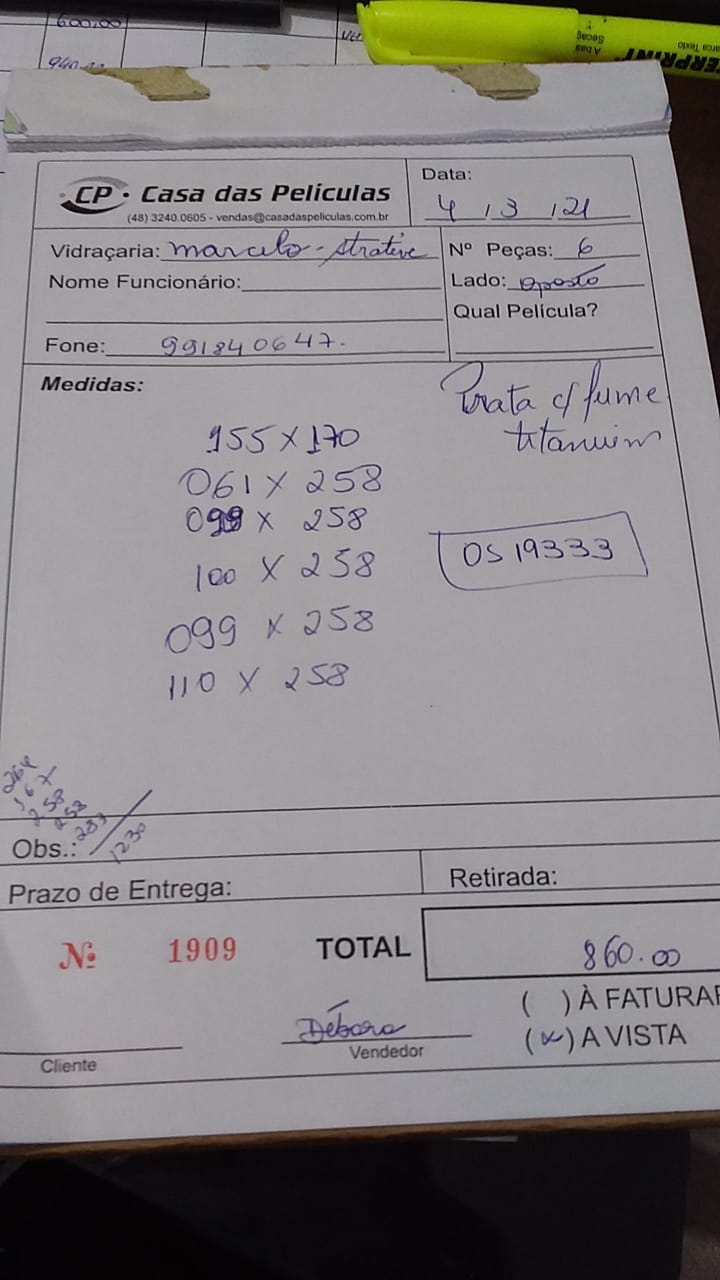 600.00
940.00
A bas
Secag
TERPRINT
arca Texto
CP · Casa das Películas
(48) 3240.0605 - vendas@casadaspeliculas.com.br
Data:
4 / 3 / 21
Vidraçaria: marcelo - strative
Nº Peças: 6
Nome Funcionário:
Lado: oposto
Qual Película?
Fone: 991840647.
Medidas:
Prata c/ fume
titanium
155 X 170
061 X 258
099 X 258
100 X 258
099 X 258
110 X 258
OS 19333
258
258
283
1230
Obs.:
Prazo de Entrega:
Retirada:
Nº 1909
TOTAL
860.00
( ) À FATURAR
(x) A VISTA
Débora
Vendedor
Cliente